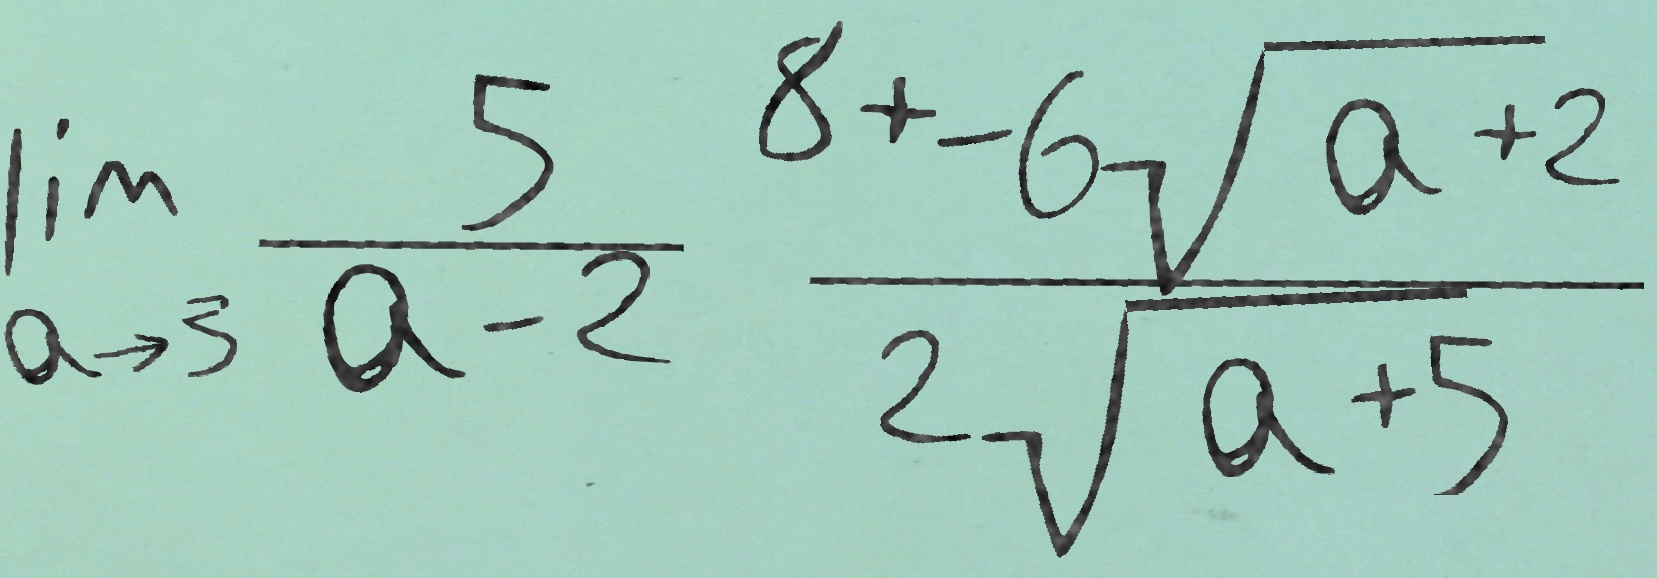 \lim_{a \to 5} \frac{5}{a-2} \frac{8+-6\sqrt{a+2}}{2\sqrt{a+5}}